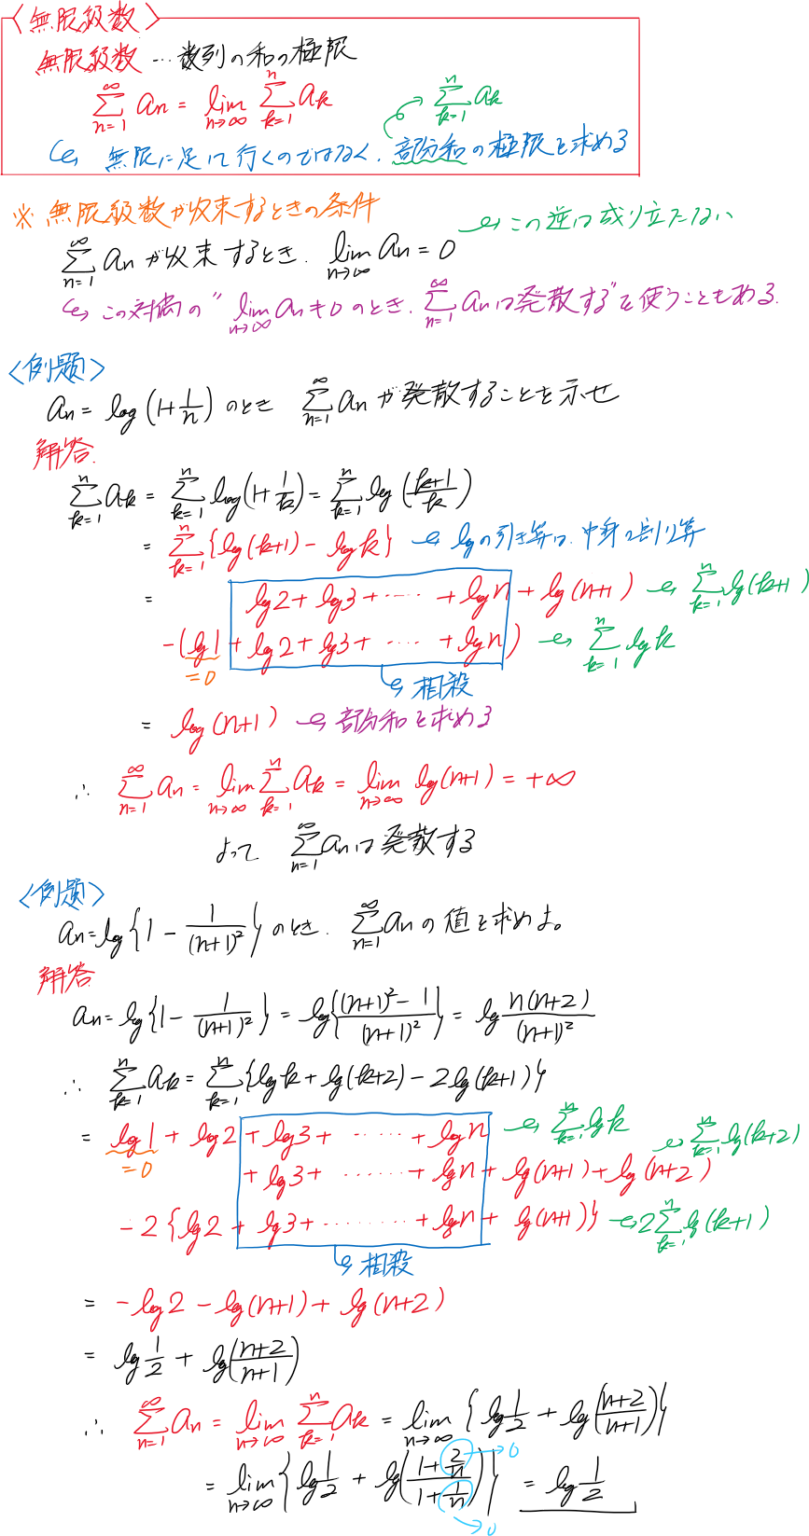 〈無限級数〉
無限級数 … 数列の和の極限
∑_{n=1}^{∞} an = lim_{n→∞} ∑_{k=1}^{n} ak → ∑_{k=1}^{n} ak
↳ 無限に足して行くのではなく、部分和の極限を求める
※ 無限級数が収束するときの条件
∑_{n=1}^{∞} an が収束するとき. lim_{n→∞} an = 0 → この逆は成り立たない
↳ この対偶の "lim_{n→∞} an ≠ 0 のとき. ∑_{n=1}^{∞} an は発散する" を使うこともある.
〈例題〉
an = log(1+1/n) のとき ∑_{n=1}^{∞} an が発散することを示せ
解答.
∑_{k=1}^{n} ak = ∑_{k=1}^{n} log(1+1/k) = ∑_{k=1}^{n} log((k+1)/k)
= ∑_{k=1}^{n} {log(k+1) - log k} → logの引き算は、中身の割り算
= log2 + log3 + ‥‥ + log n + log(n+1) → ∑_{k=1}^{n} log(k+1)
-(log1 + log2 + log3 + ‥‥ + log n) → ∑_{k=1}^{n} log k
=0 ↳ 相殺
= log(n+1) → 部分和を求める
∴ ∑_{n=1}^{∞} an = lim_{n→∞} ∑_{k=1}^{n} ak = lim_{n→∞} log(n+1) = +∞
よって ∑_{n=1}^{∞} an は発散する
〈例題〉
an = log{1 - 1/(n+1)²} のとき. ∑_{n=1}^{∞} an の値を求めよ。
解答
an = log{1 - 1/(n+1)²} = log{((n+1)² - 1)/(n+1)²} = log n(n+2)/(n+1)²
∴ ∑_{k=1}^{n} ak = ∑_{k=1}^{n} {log k + log(k+2) - 2log(k+1)}
= log1 + log2 + log3 + ‥‥ + log n → ∑_{k=1}^{n} log k
=0 + log3 + ‥‥ + log n + log(n+1) + log(n+2) → ∑_{k=1}^{n} log(k+2)
-2{log2 + log3 + ‥‥ + log n + log(n+1)} → 2∑_{k=1}^{n} log(k+1)
↳ 相殺
= -log2 - log(n+1) + log(n+2)
= log 1/2 + log((n+2)/(n+1))
∴ ∑_{n=1}^{∞} an = lim_{n→∞} ∑_{k=1}^{n} ak = lim_{n→∞} {log 1/2 + log((n+2)/(n+1))}
= lim_{n→∞} {log 1/2 + log((1+2/n)/(1+1/n))} = log 1/2
→0
→0